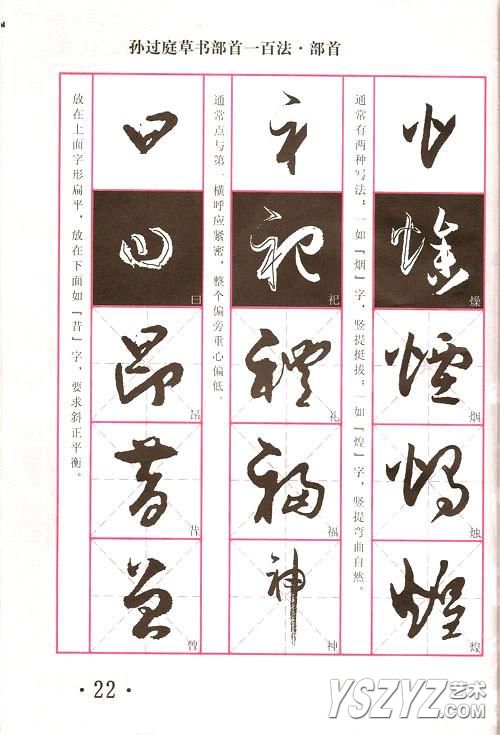 孙过庭草书部首一百法·部首
通常有两种写法；一如『烟』字，竖提挺拔；一如『煌』字，竖提弯曲自然。
燥
烟
烛
煌
通常点与第一横呼应紧密，整个偏旁重心偏低。
祀
礼
福
神
放在上面字形扁平，放在下面如『昔』字，要求斜正平衡。
曰
昂
昔
曾
·22·
YSZYZ艺术
.com